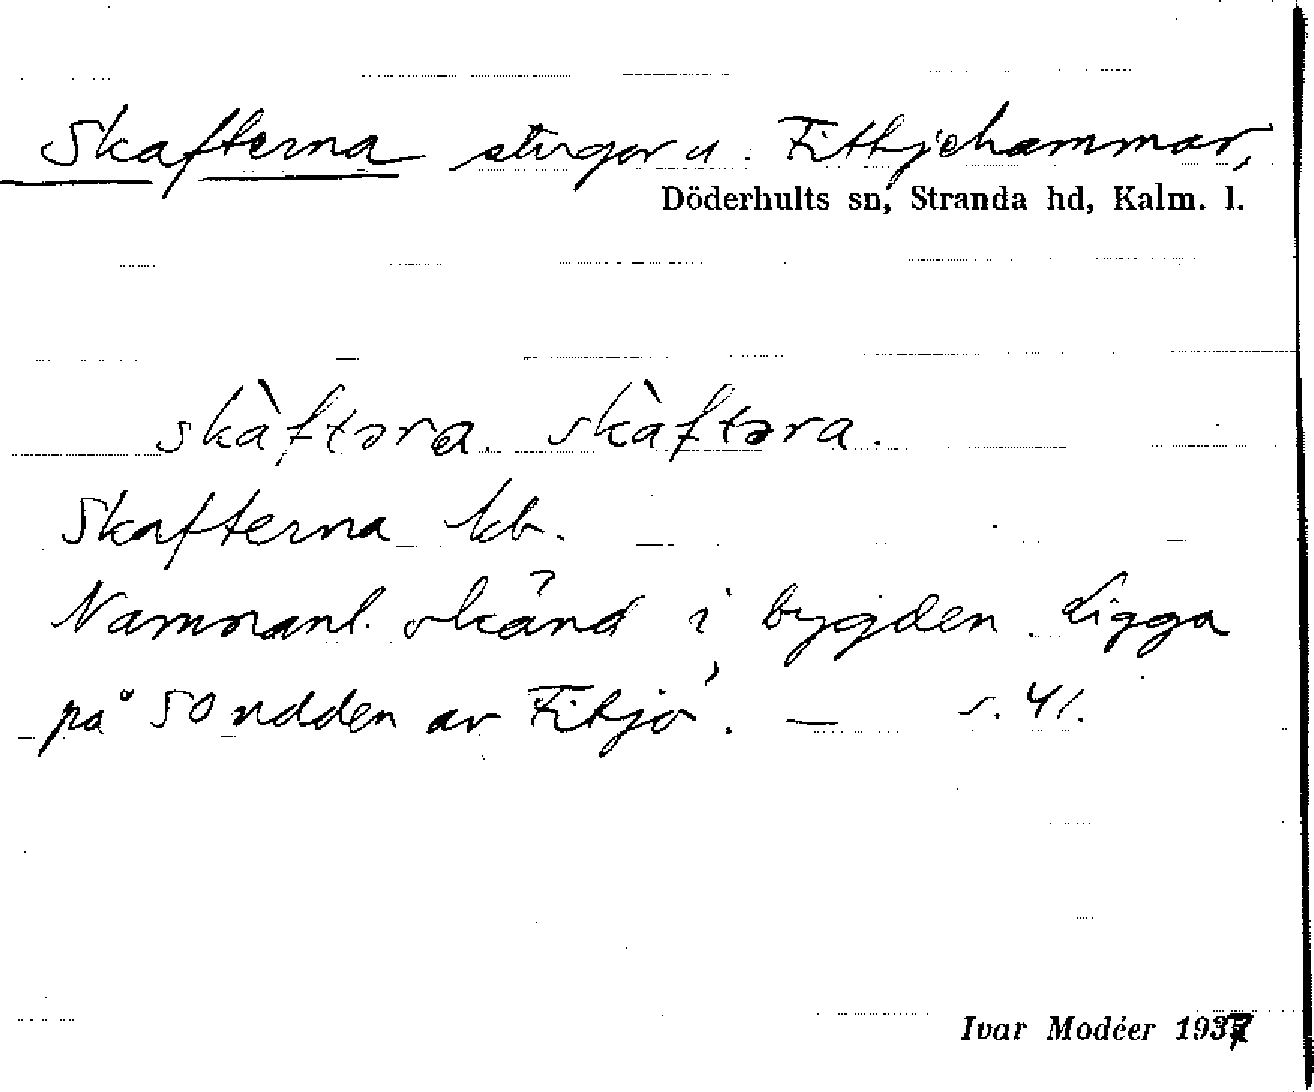 Skafterna stugor u. Fittjehammar,
Döderhults sn, Stranda hd, Kalm. l.
skàftəra. skàftəra.
Skafterna kb.
Namnanl. okänd i bygden. Ligga
på SO udden av Fitjö. — s. 41.
Ivar Modéer 1937